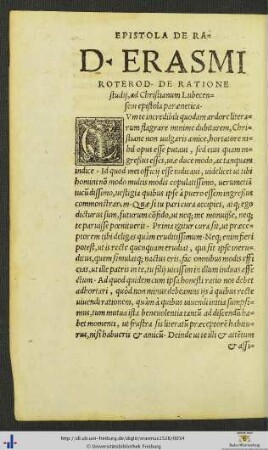 EPISTOLA DE RA-
D. ERASMI
ROTEROD. DE RATIONE
studij, ad Christianum Lubecen-
sem epistola parænetica.
CVm te incredibili quodam ardore litera-
rum flagrare minime dubitarem, Chri-
stiane non uulgaris amice, hortatore ni-
hil opus esse putaui, sed eius quam in-
gressus esses, uiæ duce modo, ac tanquam
indice. Id quod mei officij esse iudicaui, uidelicet ut tibi
homini non modo multis modis copulatissimo, uerumetiam
iucundissimo, uestigia quibus ipse à puero essem ingressus
commonstrarem. Quæ si tu pari cura accipies, atq; ego
dicturus sum, futurum confido, ut neq; me monuisse, neq;
te paruisse pœnituerit. Prima igitur cura sit, ut præcep
torem tibi deligas quàm eruditissimum. Neq; enim fieri
potest, ut is recte quenquam erudiat, qui sit ipse inerudi
tus, quem simulatq; nactus eris, fac omnibus modis effi
cias, ut ille patris in te, tu filij uicissim in illum induas affe
ctum. Ad quod quidem cum ipsa honesti ratio nos debet
adhortari, quòd non minus debeamus ijs à quibus recte
uiuendi rationem, quàm à quibus uiuendi initia sumpsi-
mus, tum mutua ista beneuolentia tantū ad discendū ha-
bet momenti, ut frustra sis literarū præceptorē habitu-
rus, nisi habueris & amicū. Deinde ut te illi & attētum
& assi-
http://dl.ub.uni-freiburg.de/diglit/erasmus1528/0054
© Universitätsbibliothek Freiburg
Baden-Württemberg